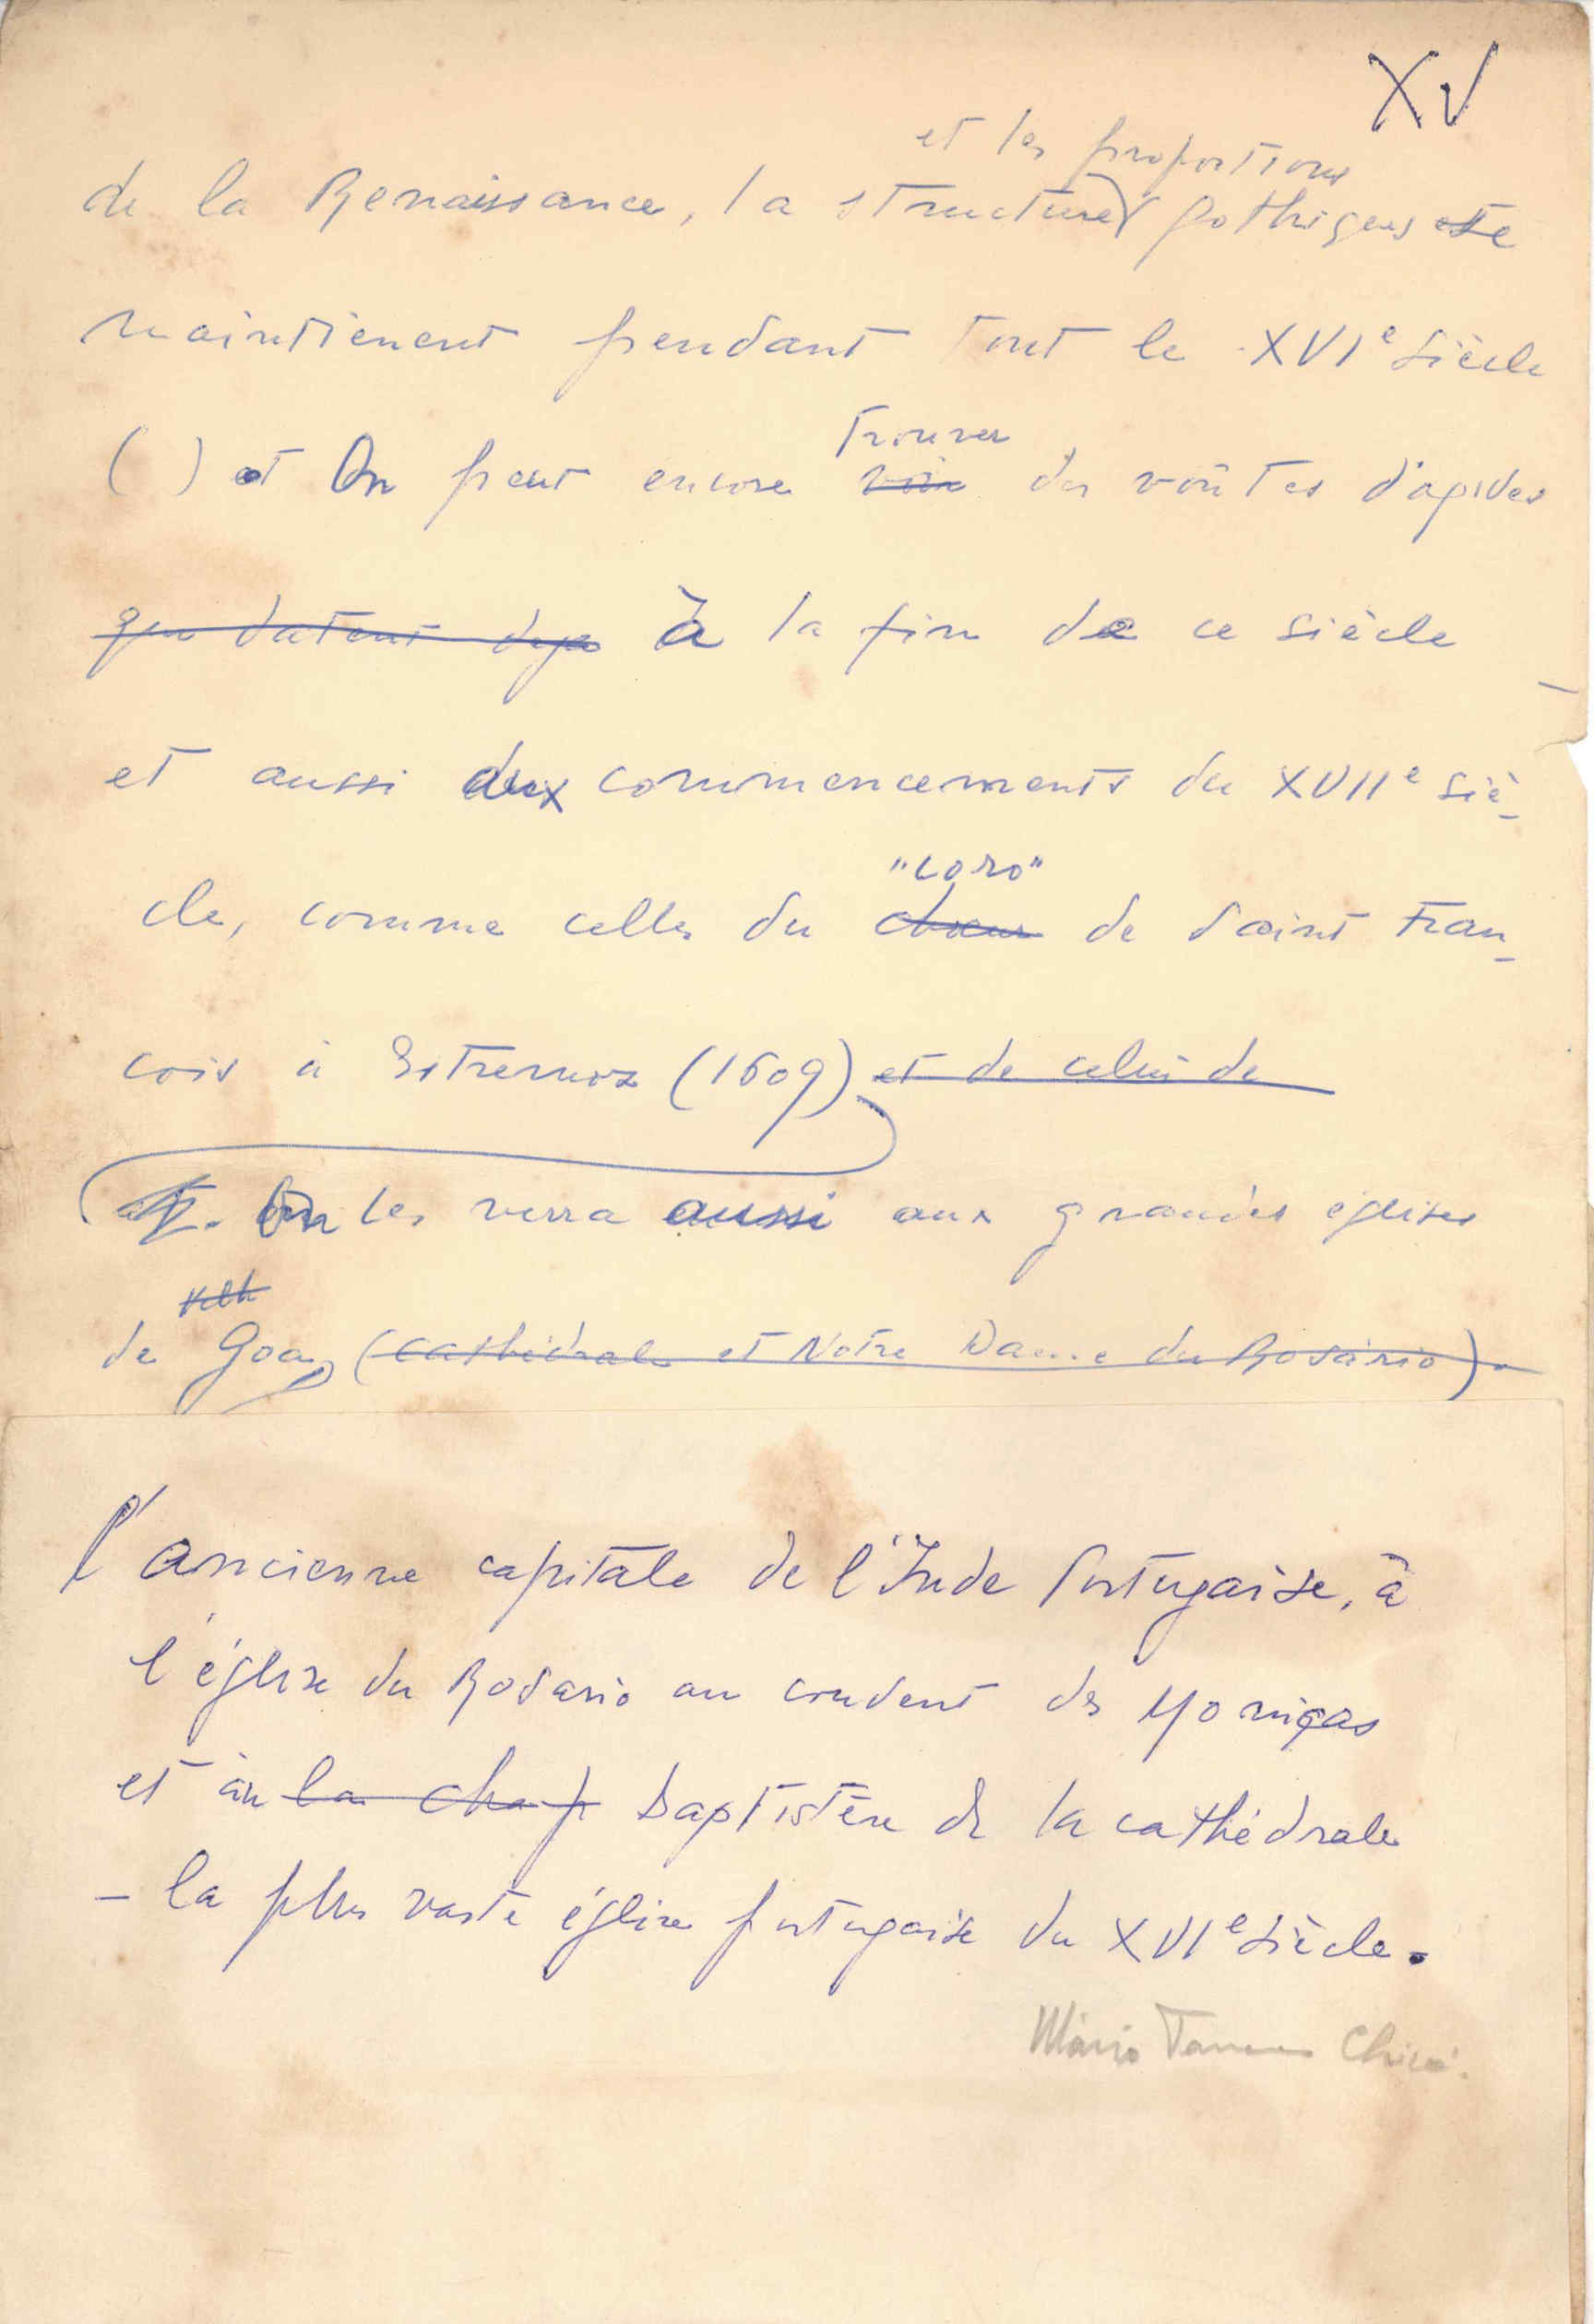 XV
et les proportions
de la Renaissance, la structure gothiques se
maintienent pendant tout le XVIe siècle
trouver
( ) et On peut encore voir des voûtes d'apsides
que datent dep à la fin de ce siècle
et aussi aux commencements du XVIIe siè-
"coro"
cle, comme celles du choeur de Saint Fran-
cois à Estremoz (1609) et de celui de
On les verra aussi aux grandes églises
de Goa, (cathédrale et Notre Dame du Rosario).
l'ancienne capitale de l'Inde Portugaise, à
l'église du Rosario au couvent des Monicas
et au la chap baptistère de la cathédrale
- la plus vaste église portugaise du XVIe siècle.
Mário Tavares Chicó.